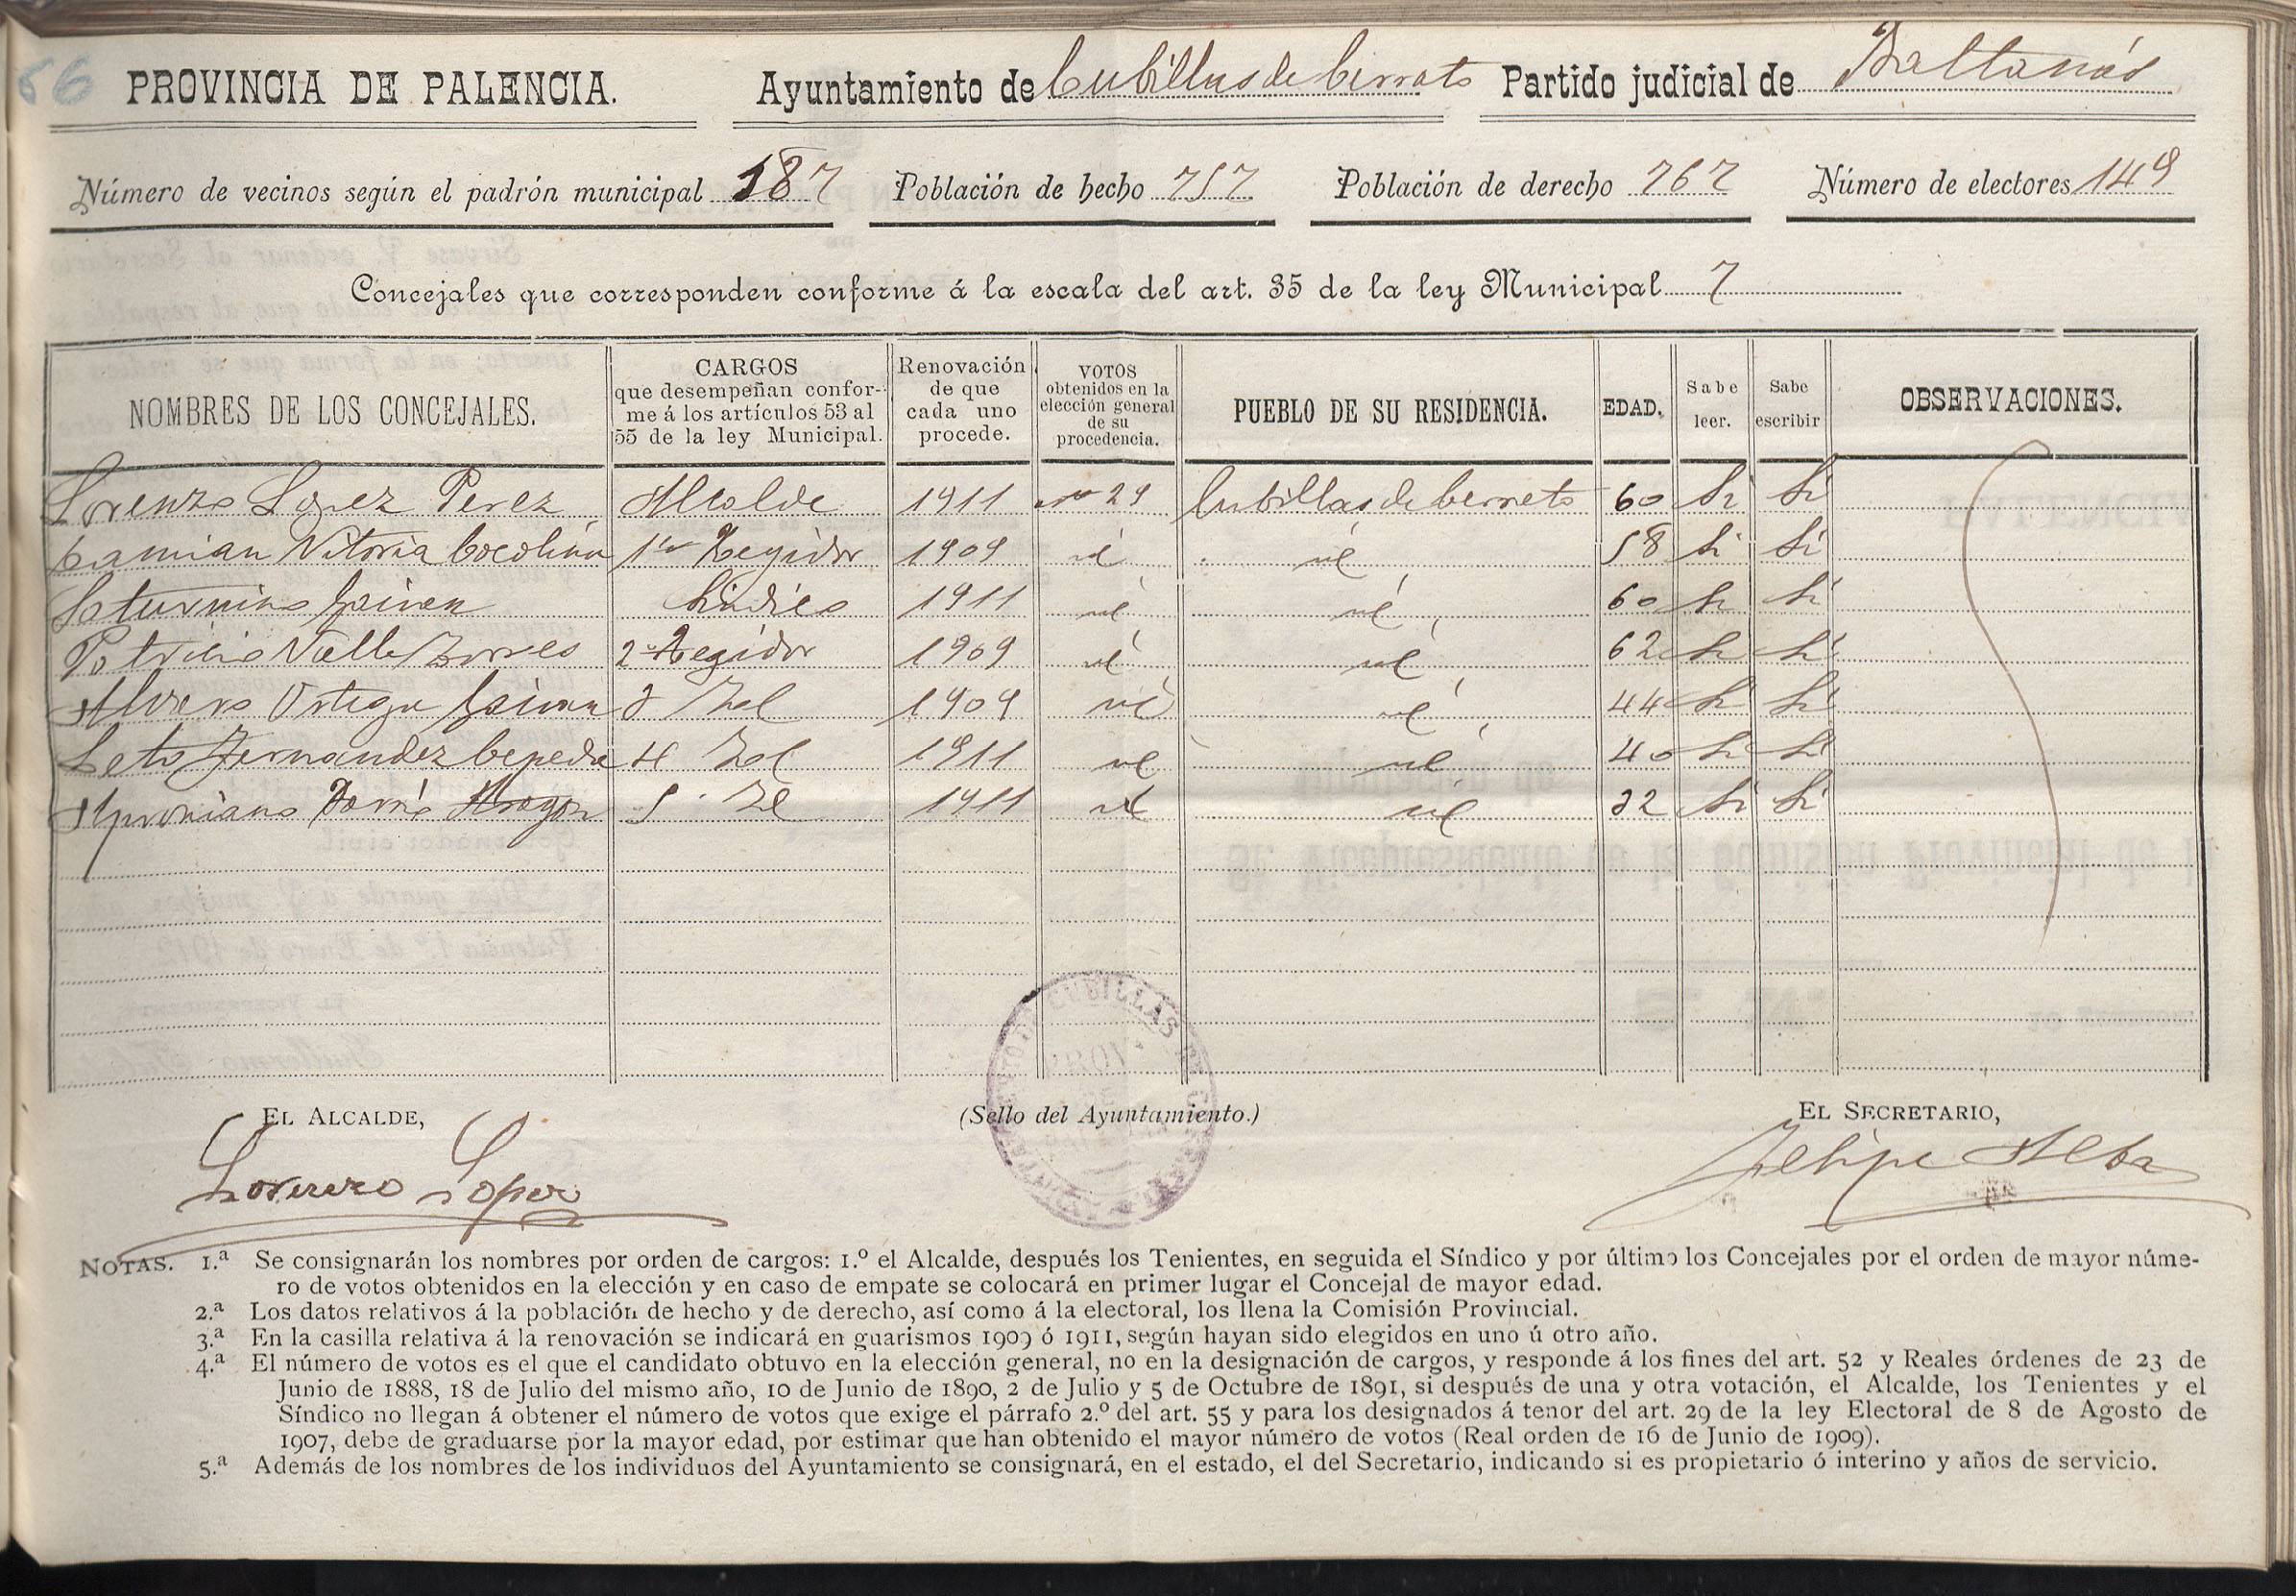 56 PROVINCIA DE PALENCIA. Ayuntamiento de Cubillas de Cerrato Partido judicial de Baltanás
Número de vecinos según el padrón municipal 187 Población de hecho 757 Población de derecho 767 Número de electores 149
Concejales que corresponden conforme á la escala del art. 35 de la ley Municipal 7
NOMBRES DE LOS CONCEJALES. CARGOS que desempeñan conforme á los artículos 53 al 55 de la ley Municipal. Renovación de que cada uno procede. VOTOS obtenidos en la elección general de su procedencia. PUEBLO DE SU RESIDENCIA. EDAD. Sabe leer. Sabe escribir OBSERVACIONES.
Lorenzo Lopez Perez Alcalde 1911 29 Cubillas de Cerrato 60 Si Si
Damian Vitoria 1er Regidor 1909 id id 58 Si Si
Saturnino Sindico 1911 id id 60 Si Si
Patricio Valle Torres 2º Regidor 1909 id id 62 Si Si
Alvaro Ortega 3 id 1909 id id 44 Si Si
Leto Fernandez Cepeda 4 id 1911 id id 40 Si Si
Aproniano Aragon 5 id 1911 id id 32 Si Si
EL ALCALDE, (Sello del Ayuntamiento.) EL SECRETARIO,
Lorenzo Lopez Felipe Alba
NOTAS. 1.ª Se consignarán los nombres por orden de cargos: 1.º el Alcalde, después los Tenientes, en seguida el Síndico y por último los Concejales por el orden de mayor núme-
ro de votos obtenidos en la elección y en caso de empate se colocará en primer lugar el Concejal de mayor edad.
2.ª Los datos relativos á la población de hecho y de derecho, así como á la electoral, los llena la Comisión Provincial.
3.ª En la casilla relativa á la renovación se indicará en guarismos 1909 ó 1911, según hayan sido elegidos en uno ú otro año.
4.ª El número de votos es el que el candidato obtuvo en la elección general, no en la designación de cargos, y responde á los fines del art. 52 y Reales órdenes de 23 de
Junio de 1888, 18 de Julio del mismo año, 10 de Junio de 1890, 2 de Julio y 5 de Octubre de 1891, si después de una y otra votación, el Alcalde, los Tenientes y el
Síndico no llegan á obtener el número de votos que exige el párrafo 2.º del art. 55 y para los designados á tenor del art. 29 de la ley Electoral de 8 de Agosto de
1907, debe de graduarse por la mayor edad, por estimar que han obtenido el mayor número de votos (Real orden de 16 de Junio de 1909).
5.ª Además de los nombres de los individuos del Ayuntamiento se consignará, en el estado, el del Secretario, indicando si es propietario ó interino y años de servicio.